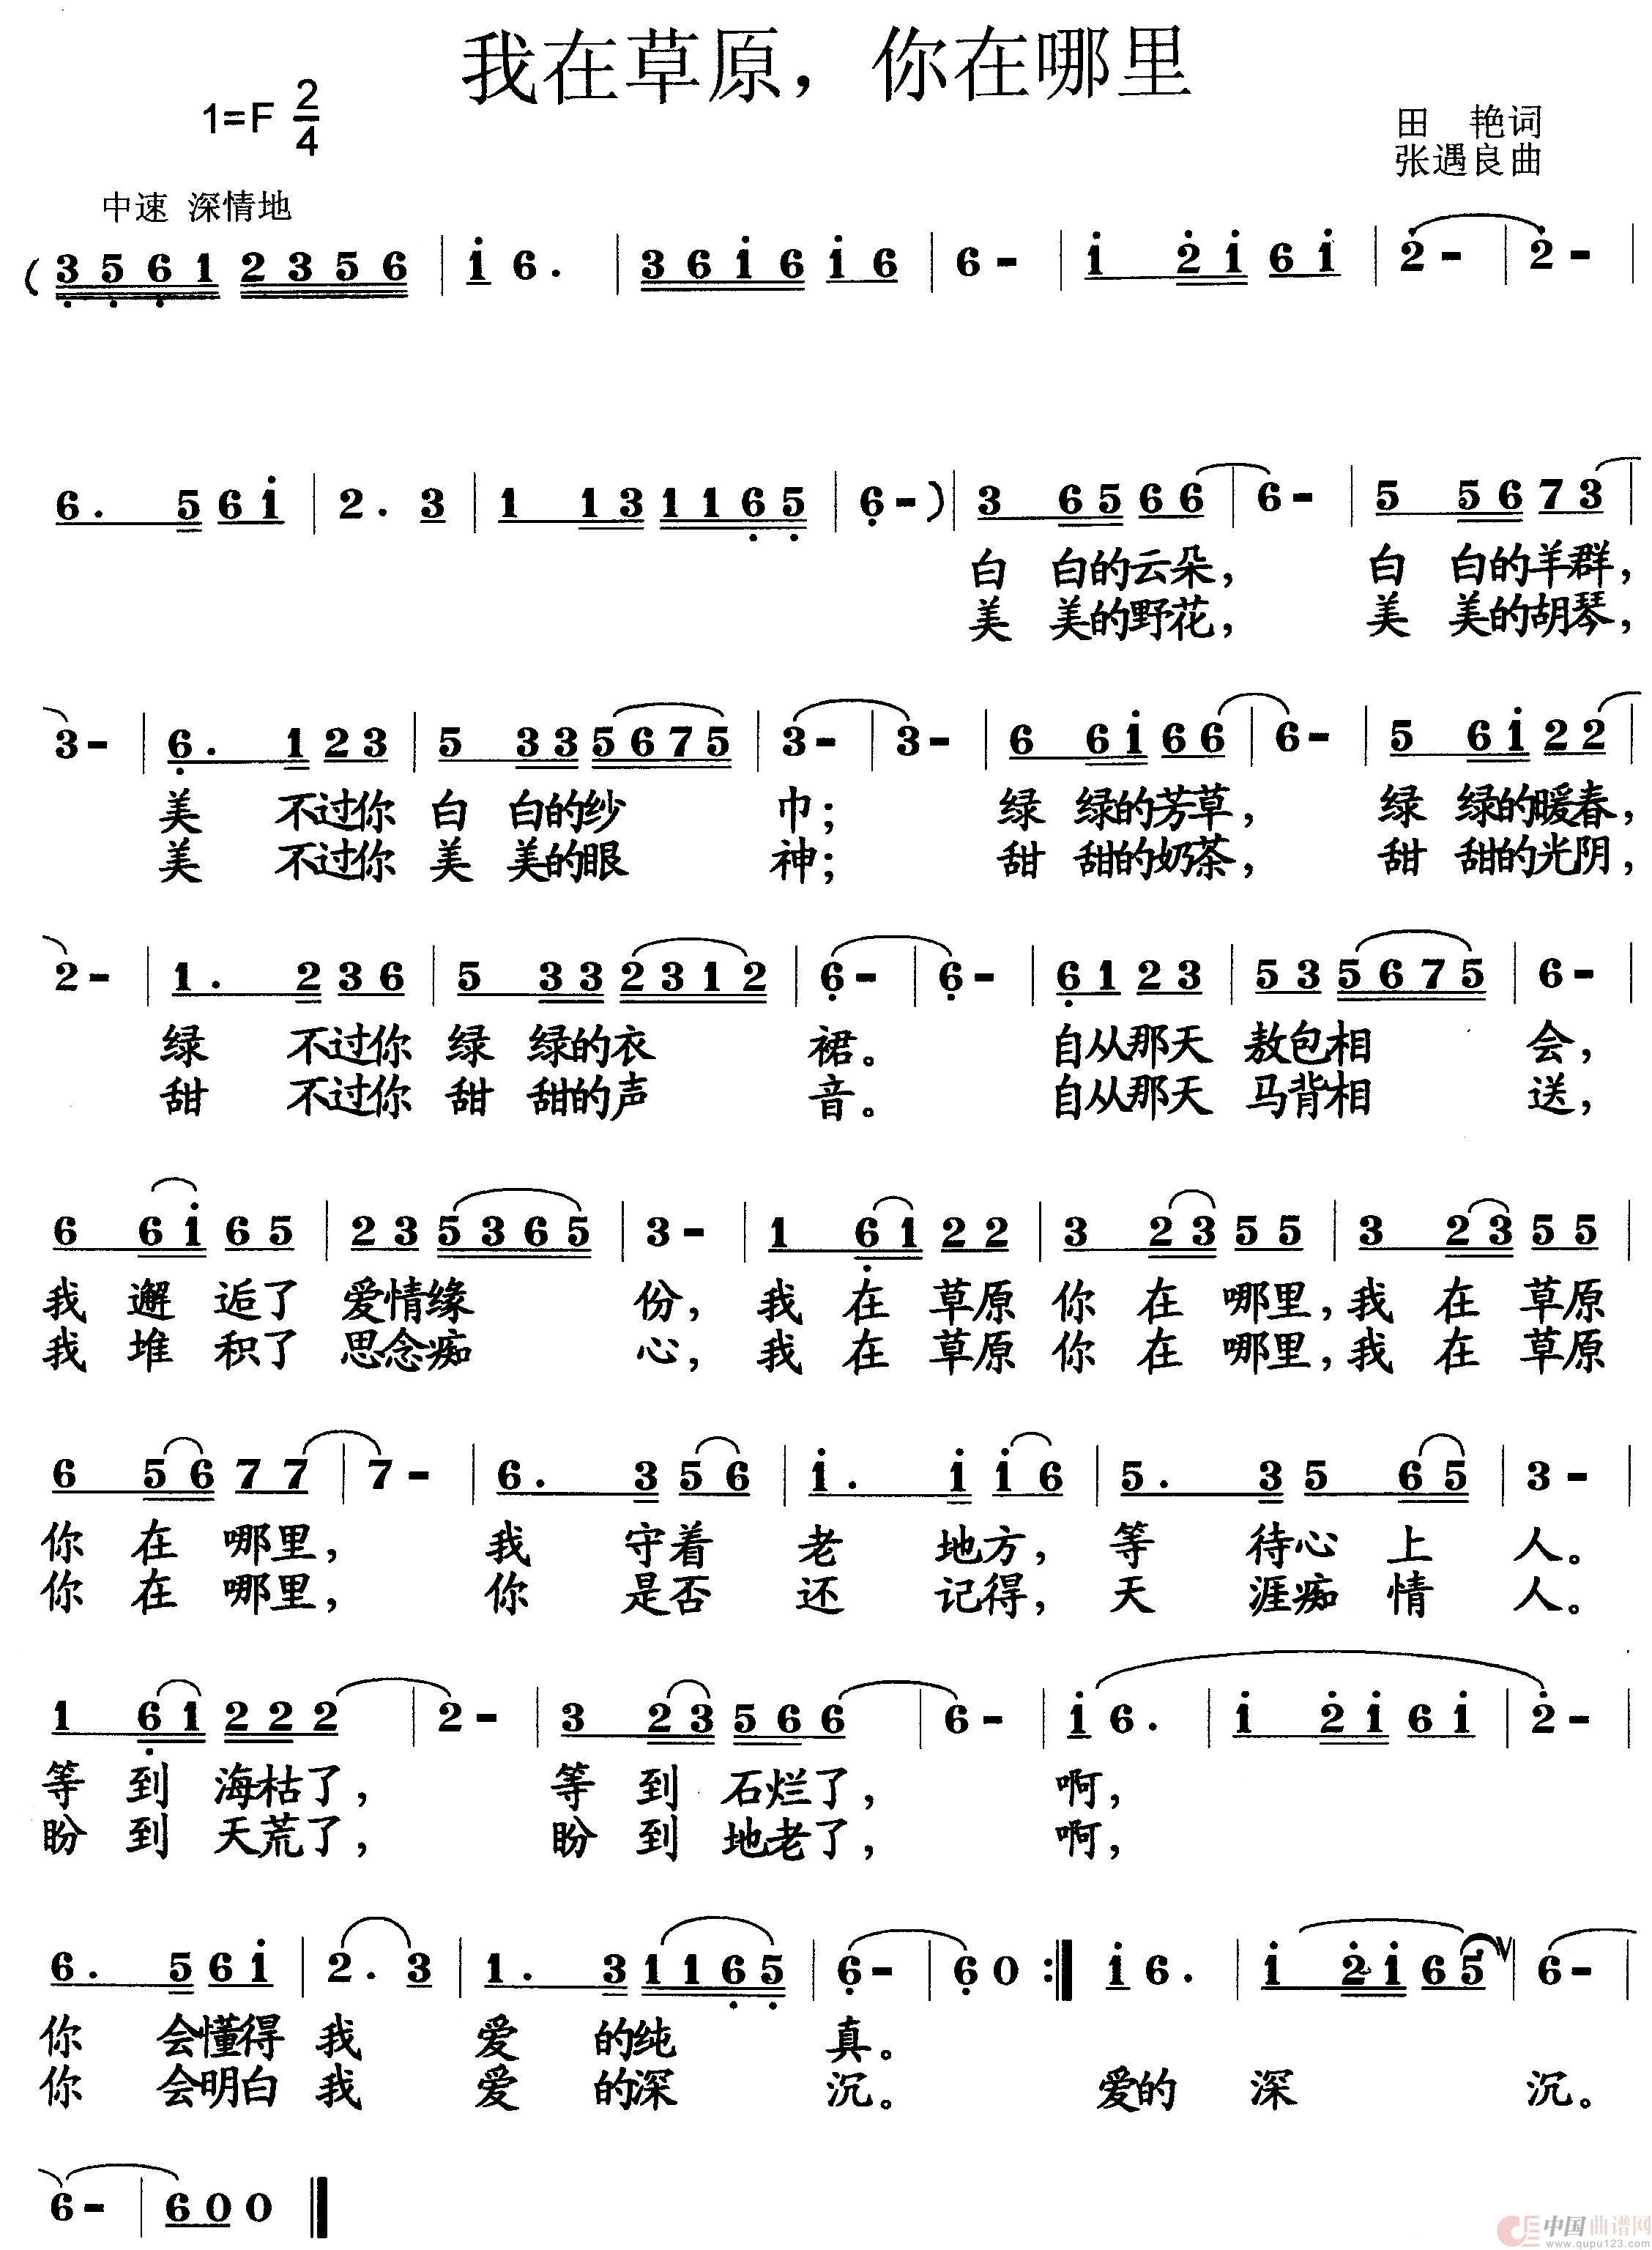 我在草原，你在哪里
1=F 2/4
田　艳词
张遇良曲
中速 深情地
( 3 5 6 1 2 3 5 6 | i 6 . | 3 6 i 6 i 6 | 6 - | i 2 i 6 i | 2 - | 2 - |
6 . 5 6 i | 2 . 3 | 1 1 3 1 1 6 5 | 6 - ) | 3 6 5 6 6 | 6 - | 5 5 6 7 3 |
白 白的云朵， 白 白的羊群，
美 美的野花， 美 美的胡琴，
3 - | 6 . 1 2 3 | 5 3 3 5 6 7 5 | 3 - | 3 - | 6 6 i 6 6 | 6 - | 5 6 i 2 2 |
美 不过你 白 白的纱 巾； 绿 绿的芳草， 绿 绿的暖春，
美 不过你 美 美的眼 神； 甜 甜的奶茶， 甜 甜的光阴，
2 - | 1 . 2 3 6 | 5 3 3 2 3 1 2 | 6 - | 6 - | 6 1 2 3 | 5 3 5 6 7 5 | 6 - |
绿 不过你 绿 绿的衣 裙。 自从那天 敖包相 会，
甜 不过你 甜 甜的声 音。 自从那天 马背相 送，
6 6 i 6 5 | 2 3 5 3 6 5 | 3 - | 1 6 1 2 2 | 3 2 3 5 5 | 3 2 3 5 5 |
我 邂 逅了 爱情缘 份， 我 在 草原 你 在 哪里，我 在 草原
我 堆 积了 思念痴 心， 我 在 草原 你 在 哪里，我 在 草原
6 5 6 7 7 | 7 - | 6 . 3 5 6 | i . i i 6 | 5 . 3 5 6 5 | 3 - |
你 在 哪里， 我 守着 老 地方， 等 待心 上 人。
你 在 哪里， 你 是否 还 记得， 天 涯痴 情 人。
1 6 1 2 2 2 | 2 - | 3 2 3 5 6 6 | 6 - | i 6 . | i 2 i 6 i | 2 - |
等 到 海枯了， 等 到 石烂了， 啊，
盼 到 天荒了， 盼 到 地老了， 啊，
6 . 5 6 i | 2 . 3 | 1 . 3 1 1 6 5 | 6 - | 6 0 :| i 6 . | i 2 i 6 5 | 6 - |
你 会懂得 我 爱 的纯 真。
你 会明白 我 爱 的深 沉。 爱的 深 沉。
6 - | 6 0 0 ‖
中国曲谱网
www.qupu123.com